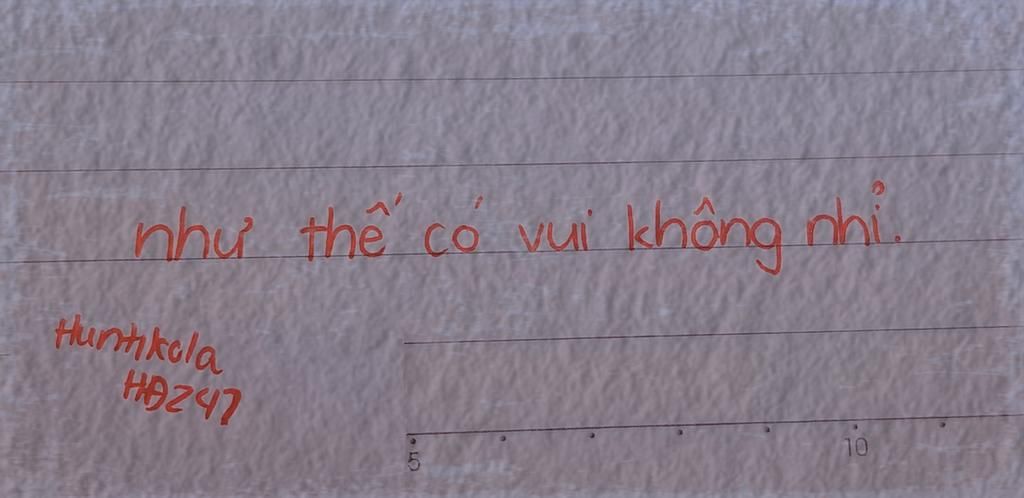 như thế có vui không nhỉ.
Huntikola
HĐ247
5 10